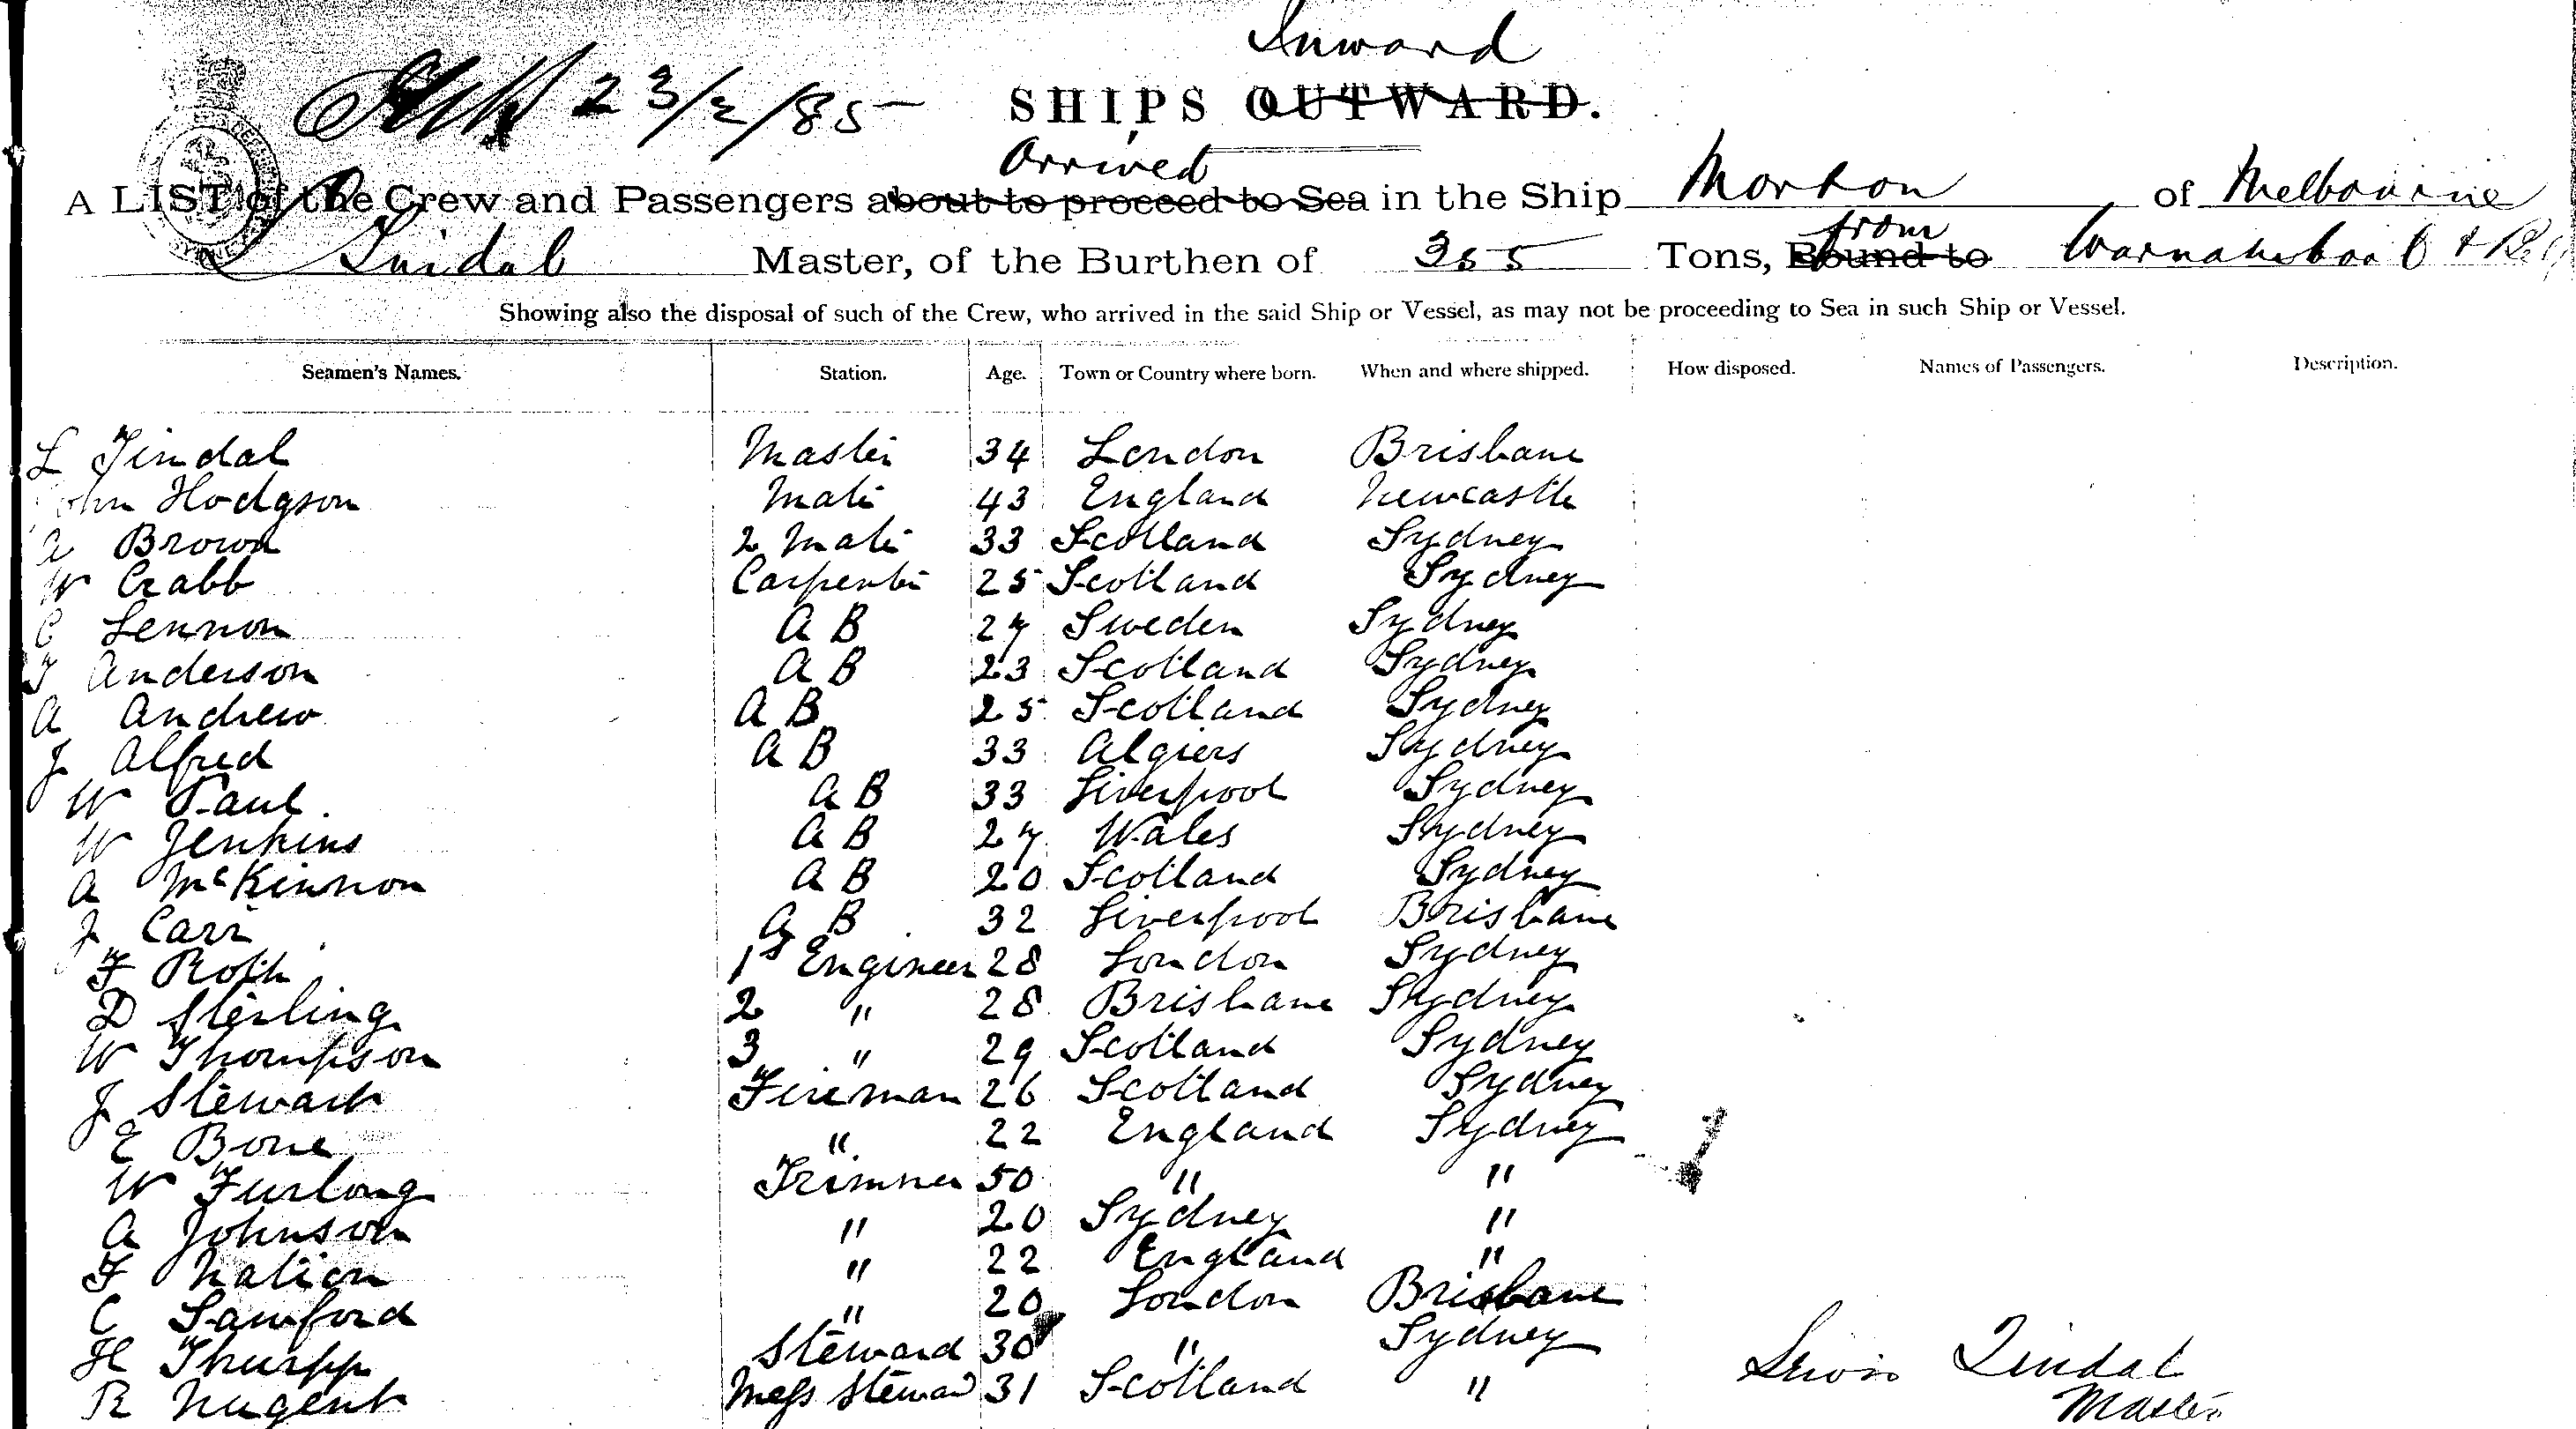 Inward
23/2/85
SHIPS OUTWARD.
Arrived
A LIST of the Crew and Passengers about to proceed to Sea in the Ship Morton of Melbourne
from
L Tindal Master, of the Burthen of 355 Tons, Bound to Warnambool &
Showing also the disposal of such of the Crew, who arrived in the said Ship or Vessel, as may not be proceeding to Sea in such Ship or Vessel.
Seamen's Names. Station. Age. Town or Country where born. When and where shipped. How disposed. Names of Passengers. Description.
L Tindal Master 34 London Brisbane
John Hodgson Mate 43 England Newcastle
A Brown 2 Mate 33 Scotland Sydney
W Crabb Carpenter 25 Scotland Sydney
C Lennon A B 27 Sweden Sydney
J Anderson A B 23 Scotland Sydney
A Andrew A B 25 Scotland Sydney
J Alfred A B 33 Algiers Sydney
W Paul A B 33 Liverpool Sydney
W Jenkins A B 27 Wales Sydney
A McKinnon A B 20 Scotland Sydney
J Carr A B 32 Liverpool Brisbane
F Roth 1st Engineer 28 London Sydney
D Sterling 2 " 28 Brisbane Sydney
W Thompson 3 " 29 Scotland Sydney
J Stewart Fireman 26 Scotland Sydney
E Bone " 22 England Sydney
W Furlong Trimmer 50 " "
A Johnson " 20 Sydney "
F Nation " 22 England "
C Samford " 20 London Brisbane
H Thurpp Steward 30 " Sydney
R Nugent Mess Steward 31 Scotland "
Lewis Tindal
Master